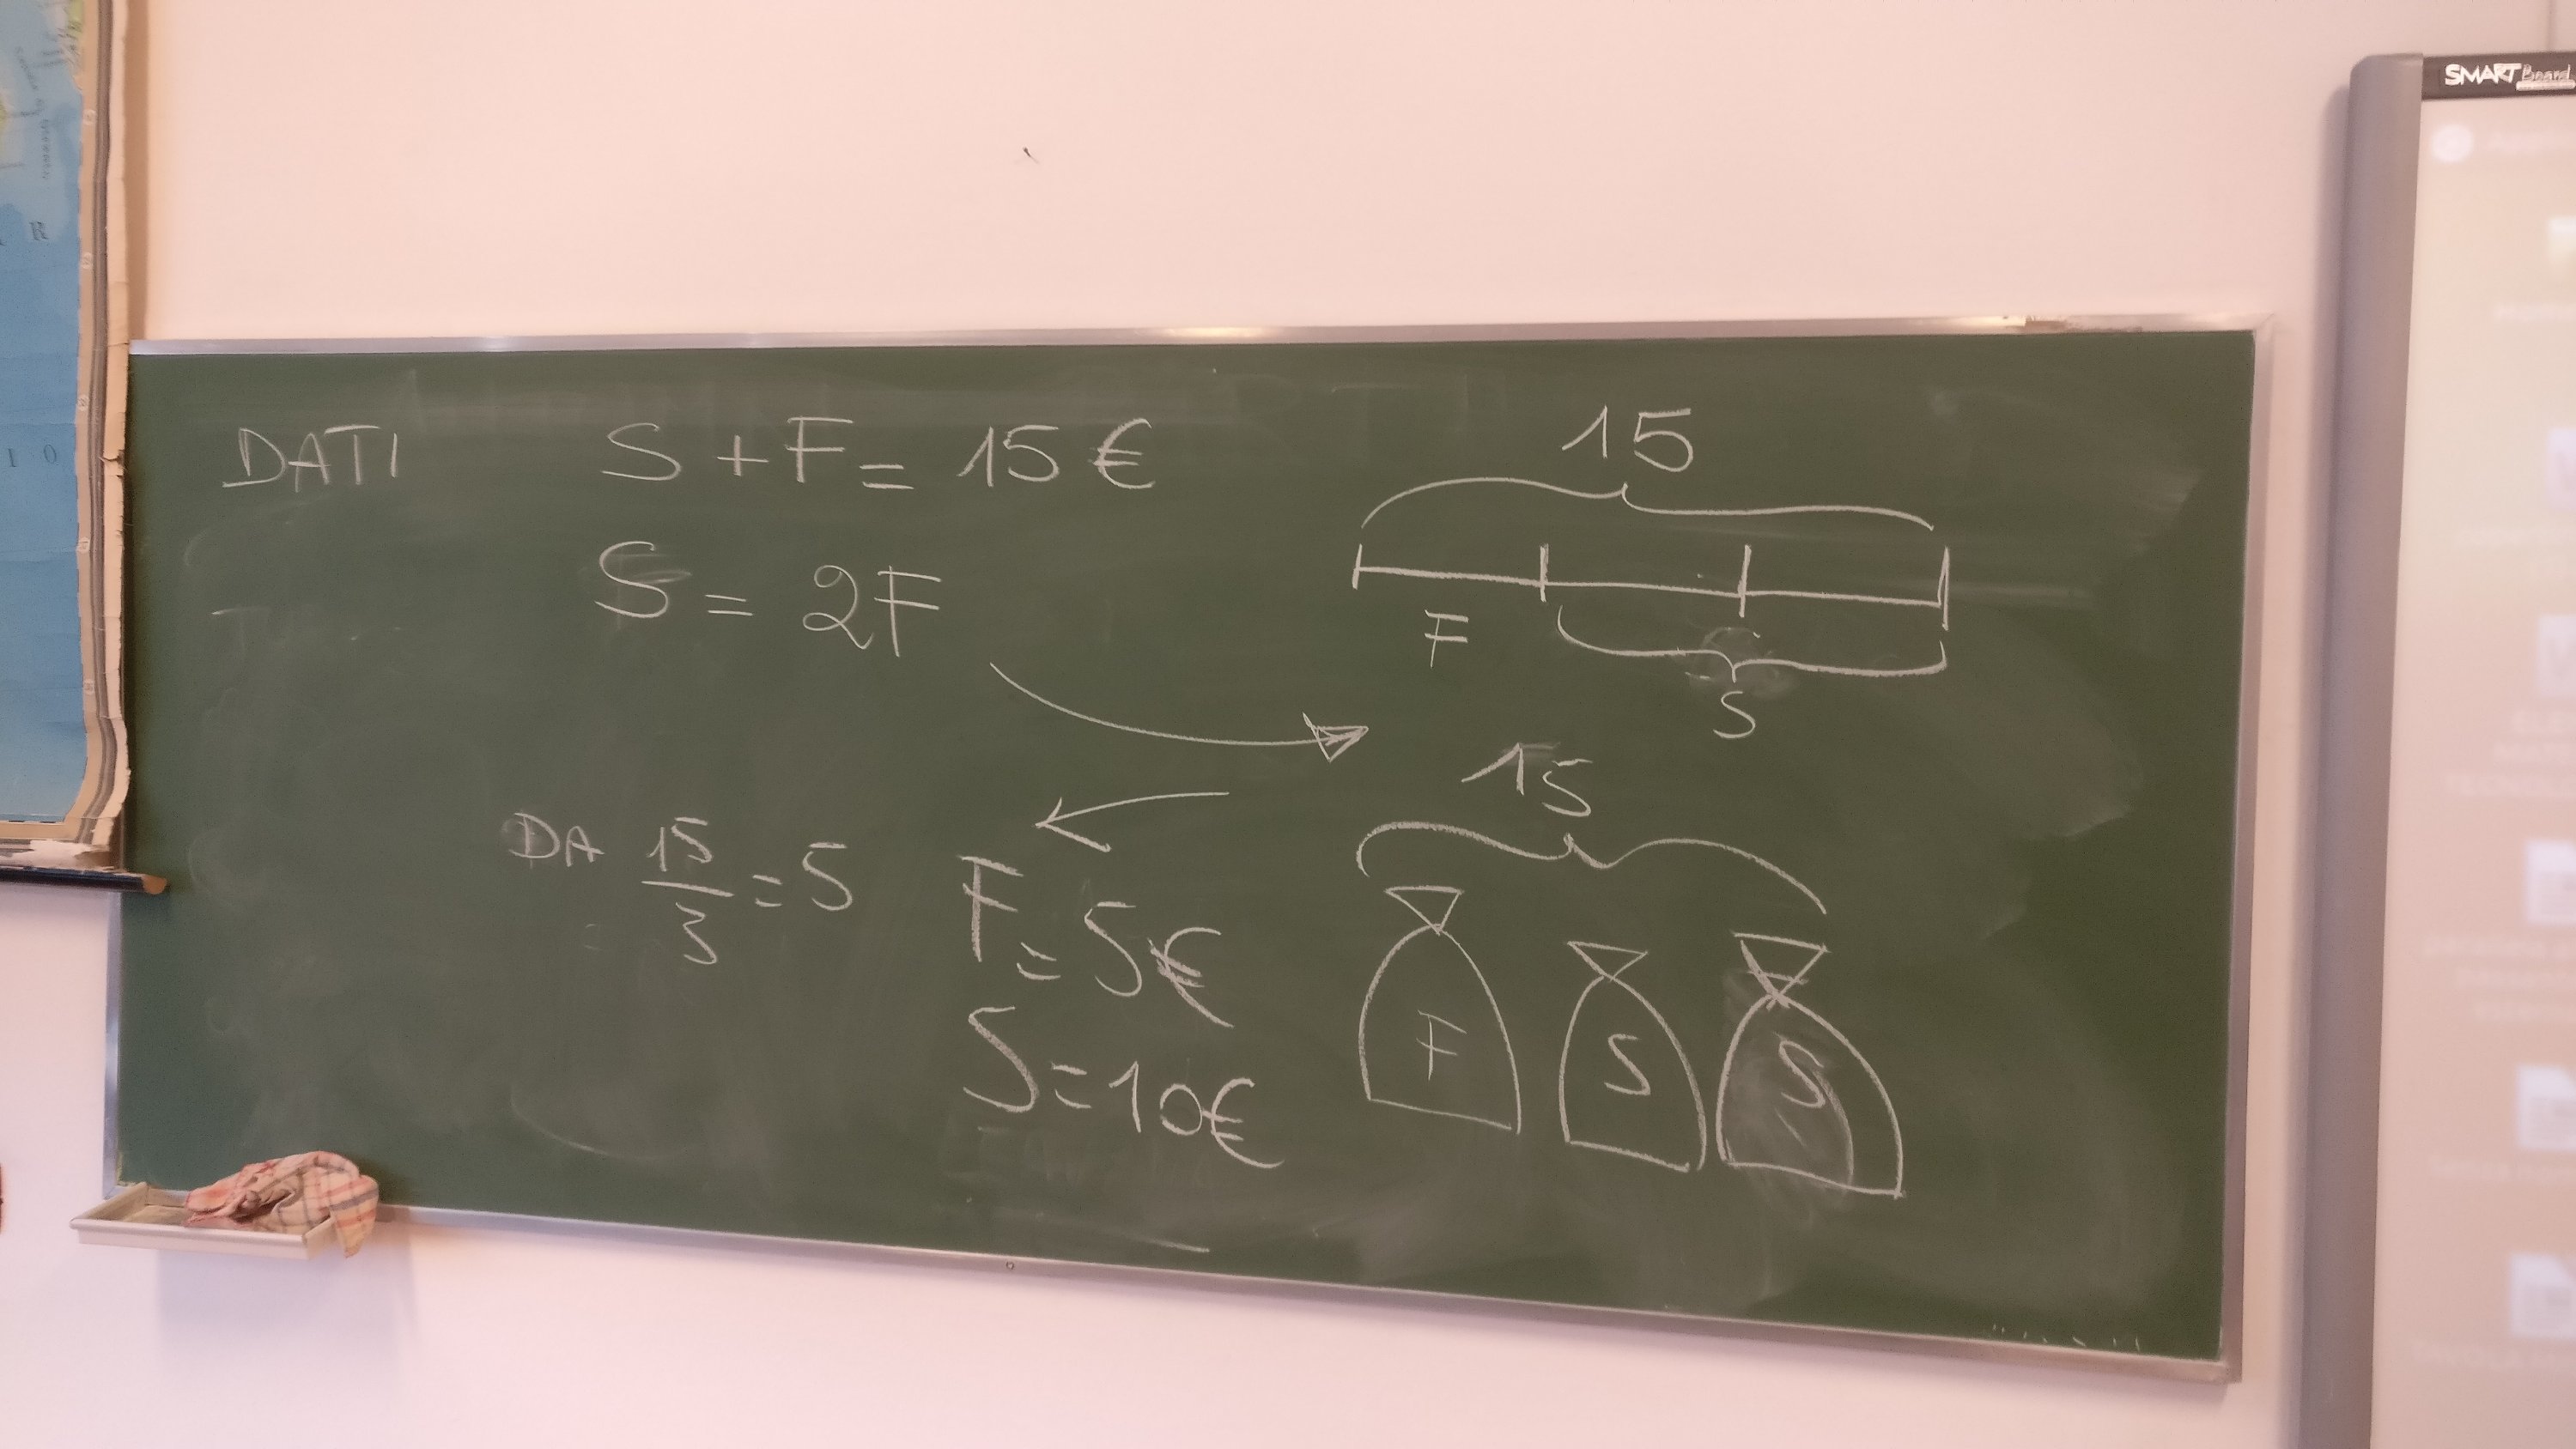 DATI
S + F = 15 €
S = 2F
15
F
S
DA 15/3 = 5
F = 5€
S = 10€
15
F
S
S
SMART Board